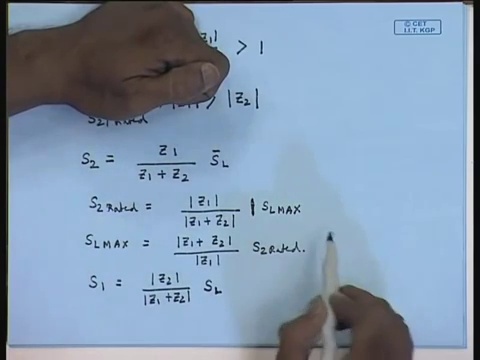 © CET
I.I.T. KGP
> 1
|Z2|
S2 = Z1 / Z1 + Z2 S̄L
S2 Rated = |Z1| / |Z1 + Z2| | SL MAX
SL MAX = |Z1 + Z2| / |Z1| S2 Rated.
S1 = |Z2| / |Z1 + Z2| SL